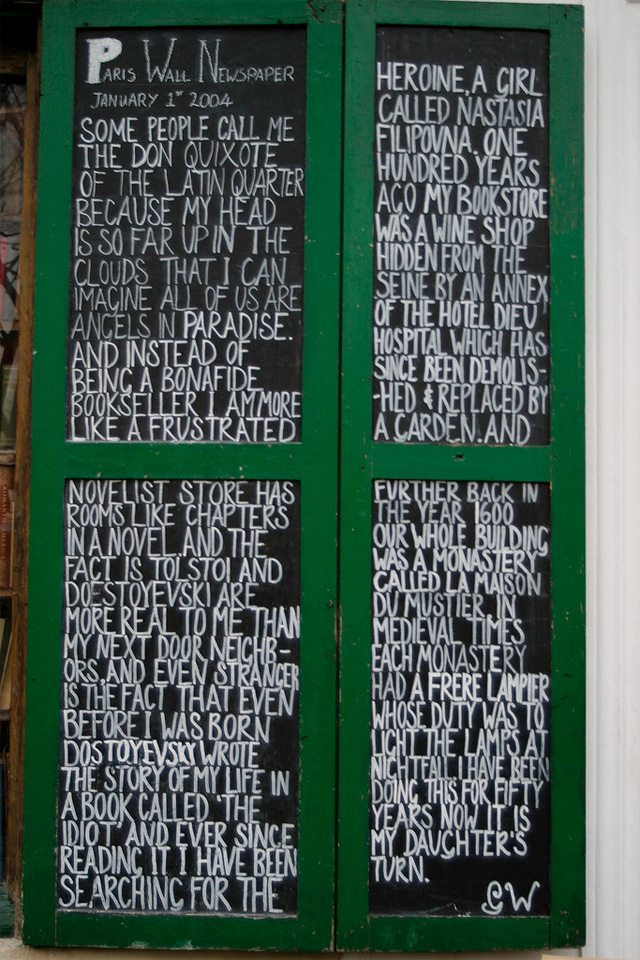 Paris Wall Newspaper
January 1st 2004
SOME PEOPLE CALL ME
THE DON QUIXOTE
OF THE LATIN QUARTER
BECAUSE MY HEAD
IS SO FAR UP IN THE
CLOUDS THAT I CAN
IMAGINE ALL OF US ARE
ANGELS IN PARADISE.
AND INSTEAD OF
BEING A BONAFIDE
BOOKSELLER I AM MORE
LIKE A FRUSTRATED
NOVELIST STORE HAS
ROOMS LIKE CHAPTERS
IN A NOVEL AND THE
FACT IS TOLSTOI AND
DOESTOYEVSKI ARE
MORE REAL TO ME THAN
MY NEXT DOOR NEIGHB-
ORS, AND EVEN STRANGER
IS THE FACT THAT EVEN
BEFORE I WAS BORN
DOSTOYEVSKY WROTE
THE STORY OF MY LIFE IN
A BOOK CALLED 'THE
IDIOT' AND EVER SINCE
READING IT I HAVE BEEN
SEARCHING FOR THE
HEROINE, A GIRL
CALLED NASTASIA
FILIPOVNA. ONE
HUNDRED YEARS
AGO MY BOOKSTORE
WAS A WINE SHOP
HIDDEN FROM THE
SEINE BY AN ANNEX
OF THE HOTEL DIEU
HOSPITAL WHICH HAS
SINCE BEEN DEMOLIS-
-HED & REPLACED BY
A GARDEN. AND
FURTHER BACK IN
THE YEAR 1600
OUR WHOLE BUILDING
WAS A MONASTERY
CALLED LA MAISON
DU MUSTIER. IN
MEDIEVAL TIMES
EACH MONASTERY
HAD A FRERE LAMPIER
WHOSE DUTY WAS TO
LIGHT THE LAMPS AT
NIGHTFALL. I HAVE BEEN
DOING THIS FOR FIFTY
YEARS NOW IT IS
MY DAUGHTER'S
TURN.
GW